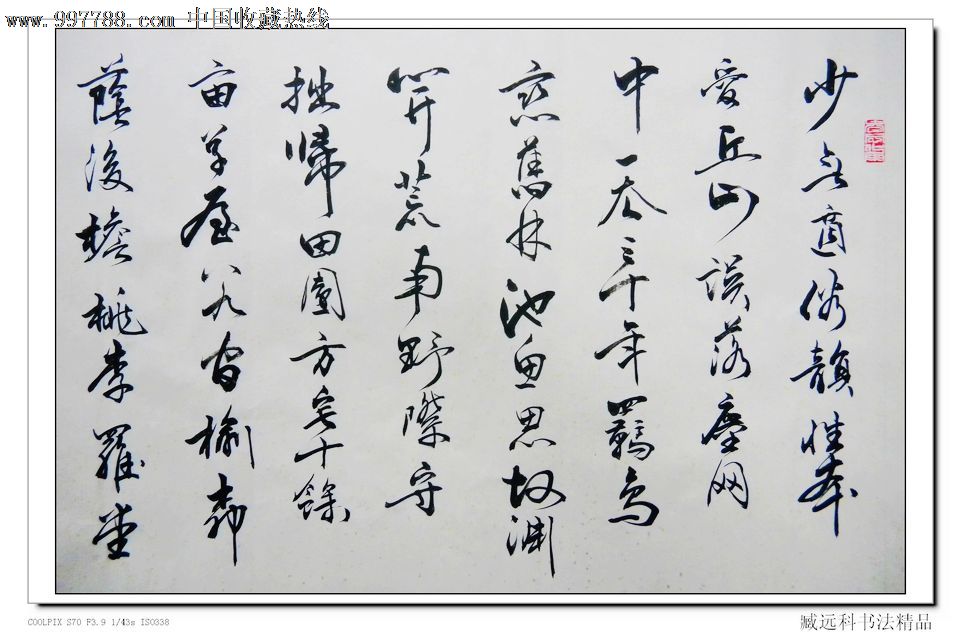 www.997788.com 中国收藏热线
少无適俗韻性本
愛丘山误落塵网
中一去三十年羈鳥
恋舊林池魚思故渊
開荒南野際守
拙歸田園方宅十餘
亩草屋八九间榆柳
蔭後檐桃李羅堂
COOLPIX S70 F3.9 1/43s ISO338
臧远科书法精品